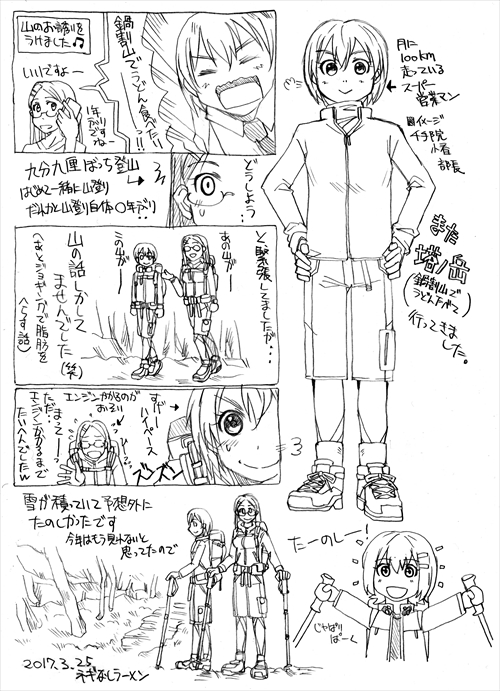 山のお誘いを
うけました♫
鍋割山で
うどん食べたい
ーっ!!
いいですよー
1年
ぶりです
ねー
月に
100km
走っている
スーパー
営業マン
図イメージ
部長
九分九厘ぼっち登山
はじめて一緒に山登り
だんなと山登り自体〇年ぶり
どうしよう
と緊張してましたが…
あの山がー
この山がー
山の話しかして
ませんでした
(笑)
(あとジョギングで脂肪を
へらす話)
また
塔ノ岳
(鍋割山で
うどんたべて)
行ってきました。
すげー
ハイペース
ズンズン
エンジンかかるのが
おそい
ひーっ
まってー
ただ…
エンジンかかるまで
たいへんでしたw
雪が積っていて予想外に
たのしかったです
今年はもう見れないと
思ってたので
たーのしー!
じゃぱり
ぱーく
2017.3.25
ネギなしラーメン